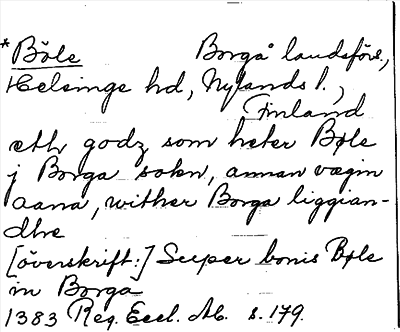 *Böle Borgå landsförs.,
Helsinge hd, Nylands l.,
Finland
eth godz som heter Bøle
j Borga sokn, annan vægin
aana, wither Borga liggian-
dhe
[överskrift:] Super bonis Bøle
in Borga
1383 Reg. Eccl. Ab. s. 179.